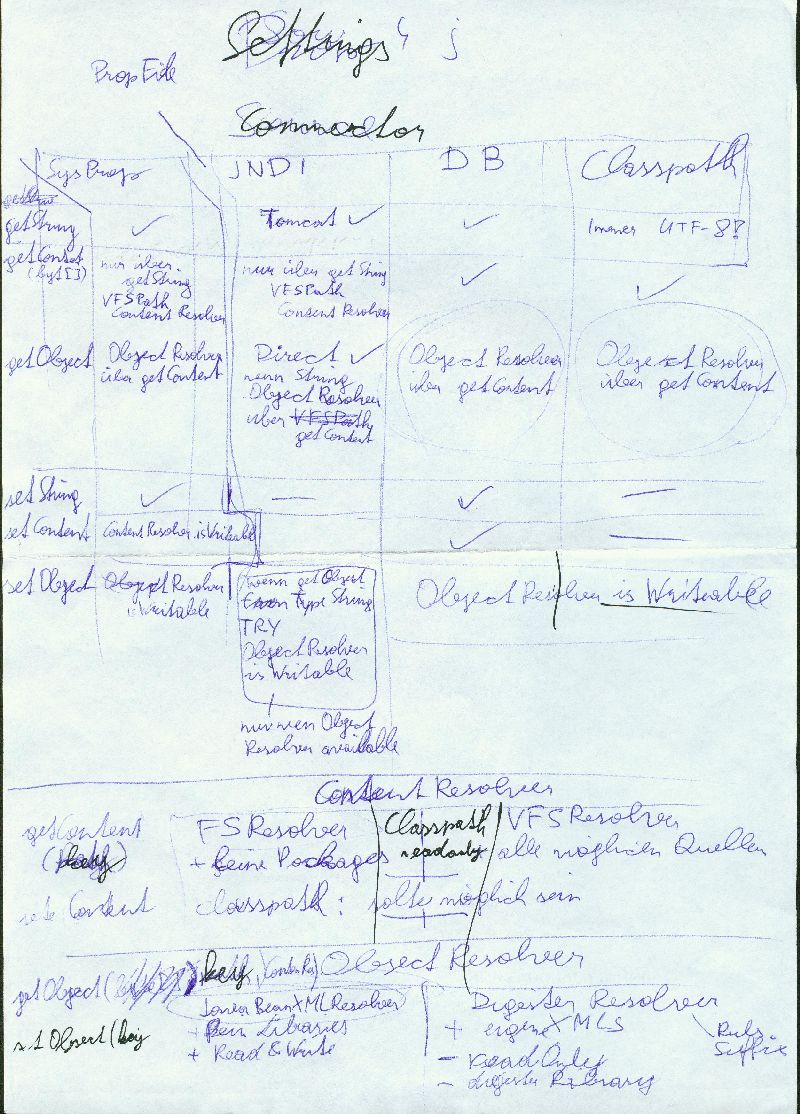 Settings 4 j
PropFile
Connector
SysProp JNDI DB Classpath
getString ✓ Tomcat ✓ ✓ Immer UTF-8?
getContent
(byte[])
nur über
getString
VFSPath
Content Resolver
nur über getString
VFSPath
Content Resolver
✓
✓
getObject
Object Resolver
über getContent
Direct ✓
wenn String
Object Resolver
über VFSPath
getContent
Object Resolver
über getContent
Object Resolver
über getContent
set String ✓ — ✓ —
set Content Content Resolver isWritable ✓ —
set Object
Object Resolver
isWritable
wenn getObject
Type String
TRY
Object Resolver
is Writable
nur wenn Object
Resolver available
Object Resolver is Writeable
Content Resolver
getContent
(key)
FS Resolver
+ keine Packages
Classpath
readonly
VFS Resolver
alle möglichen Quellen
Content
Classpath: sollte möglich sein
Object Resolver
getObject( key,
set Object (key
Java Bean XML Resolver
+ kein Libraries
+ Read & Write
Digester Resolver
+ eigene XMLs
- Read Only
- digester Library
Ruls
Suffix